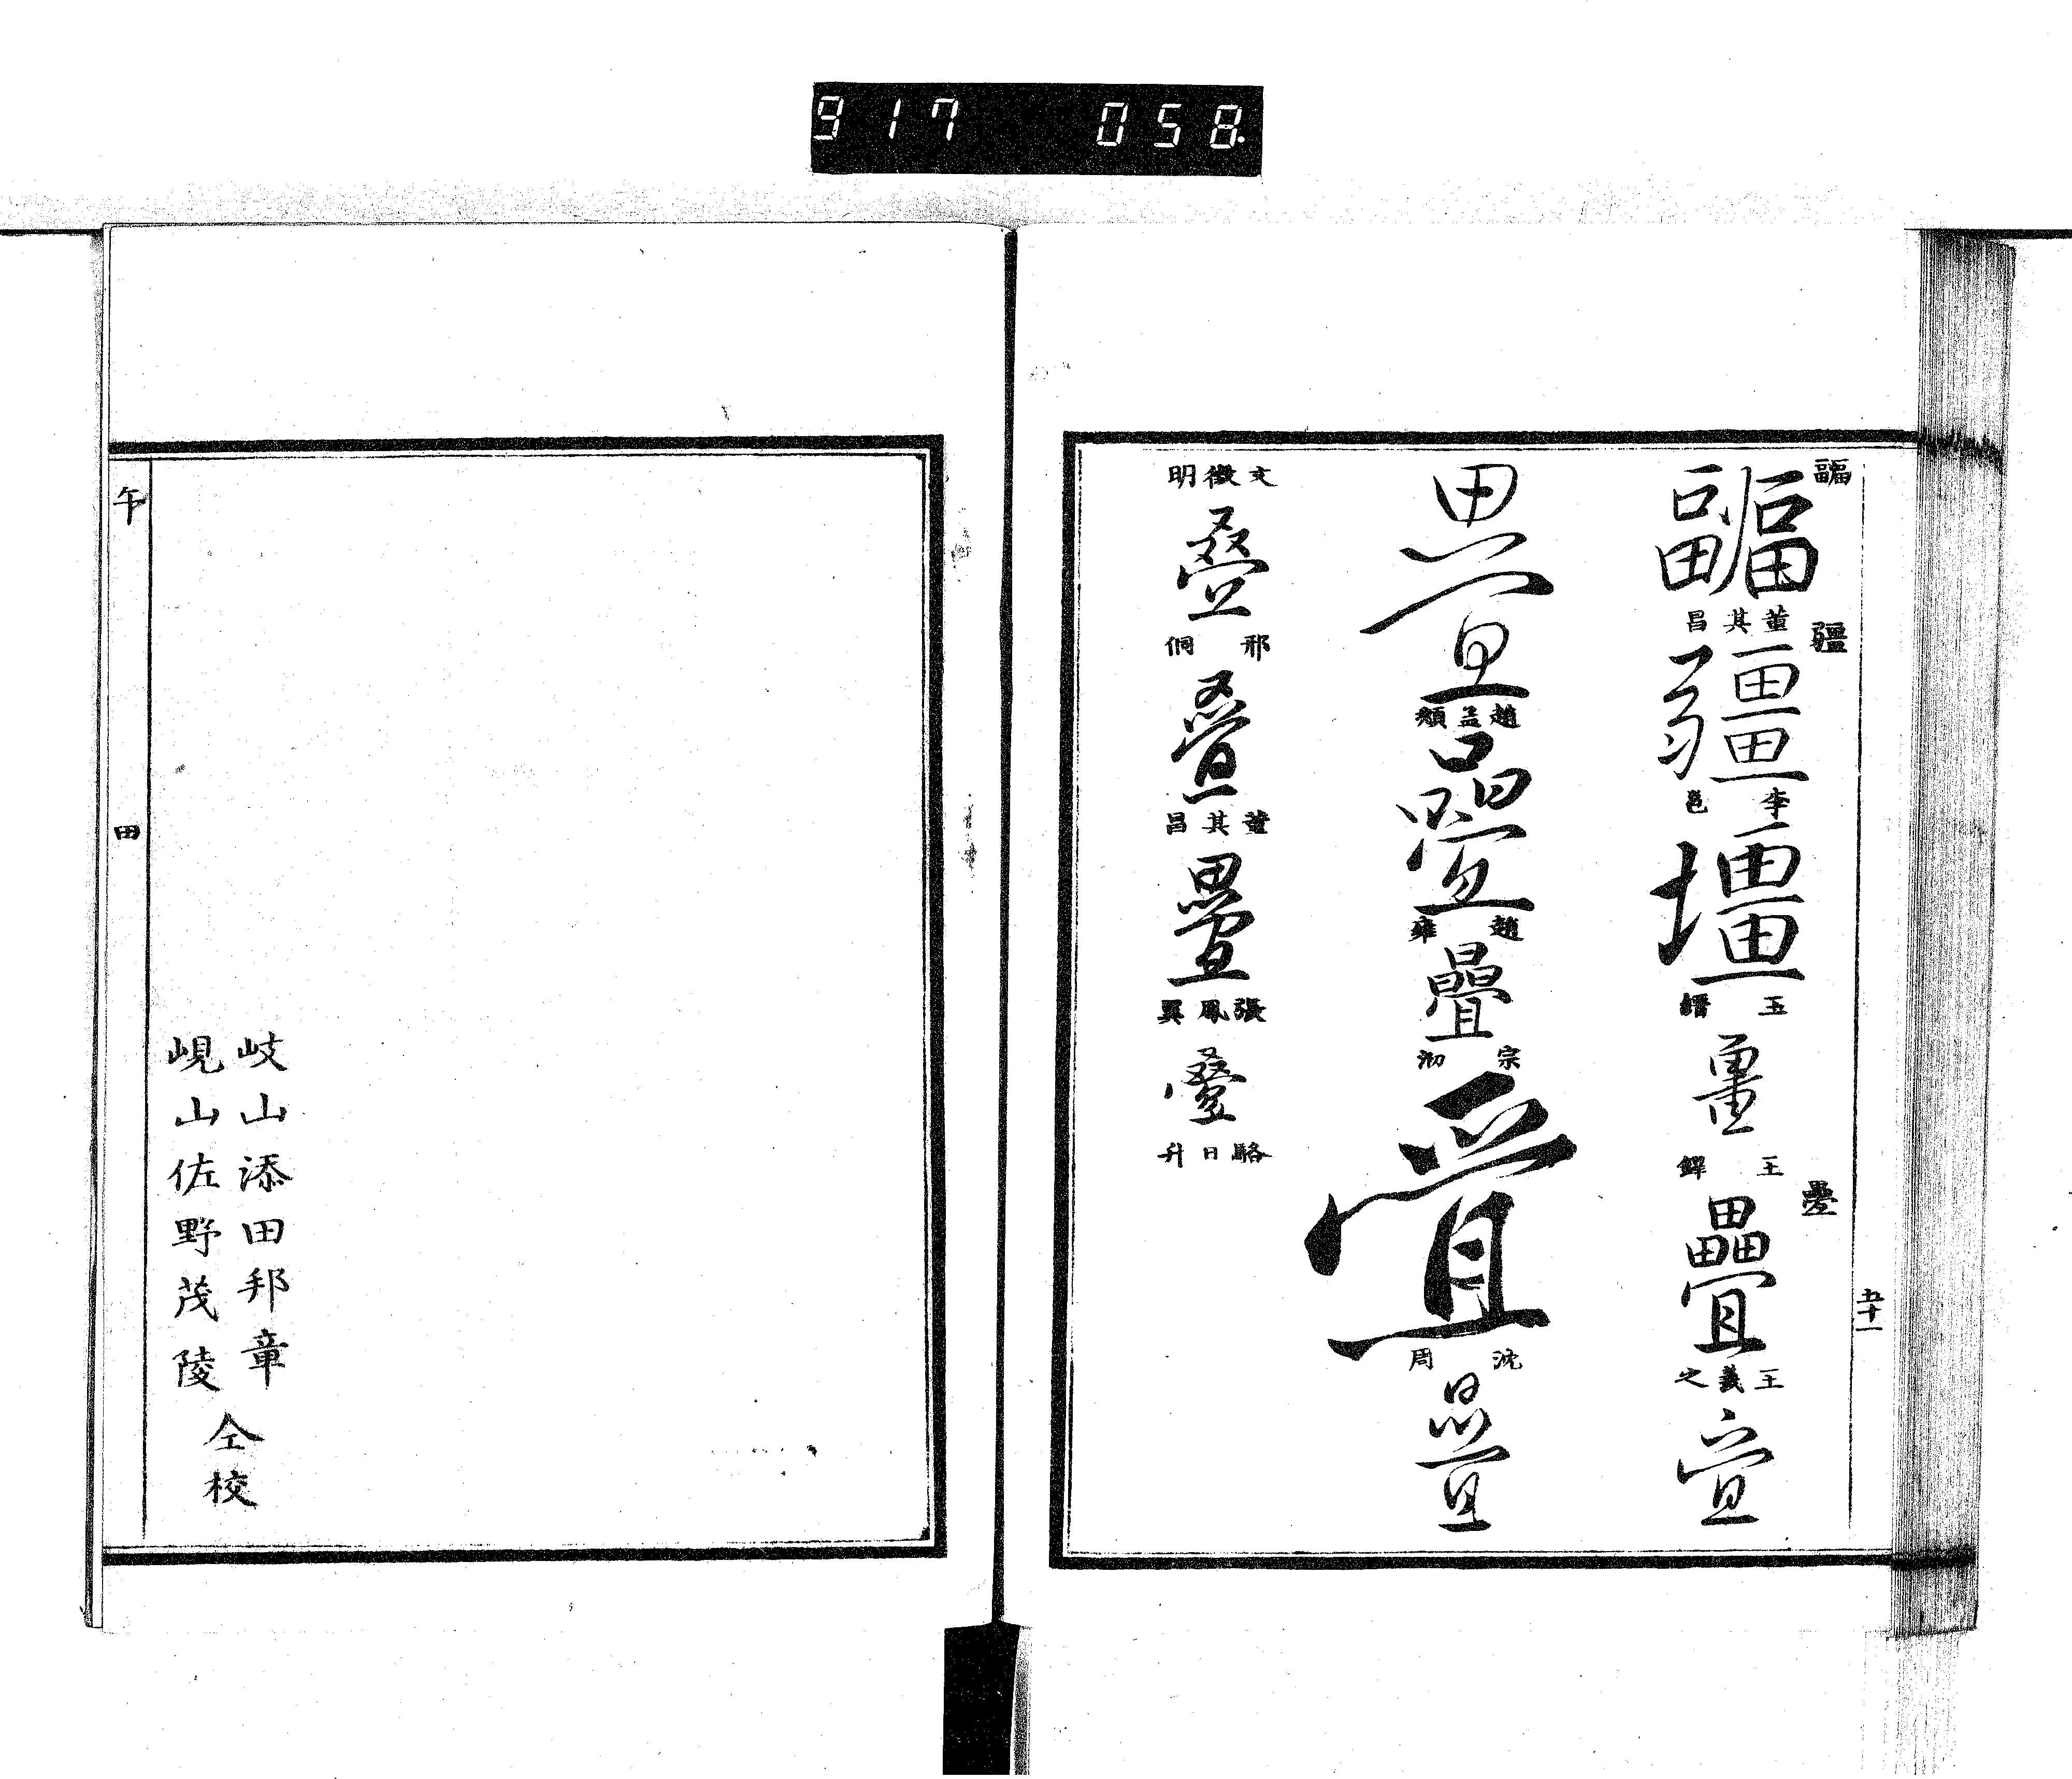 917 058
五十一
副畐
疆
疊
副畐
董其昌
疆
李邕
壃
王縉
畺
王鐸
疊
王羲之
疊
疊
趙孟頫
疊
趙雍
疊
宗泐
疊
沈周
疊
文徵明
叠
邢侗
疊
董其昌
疊
張鳳翼
疊
駱日升
午
田
岐山添田邦章
峴山佐野茂陵
仝校